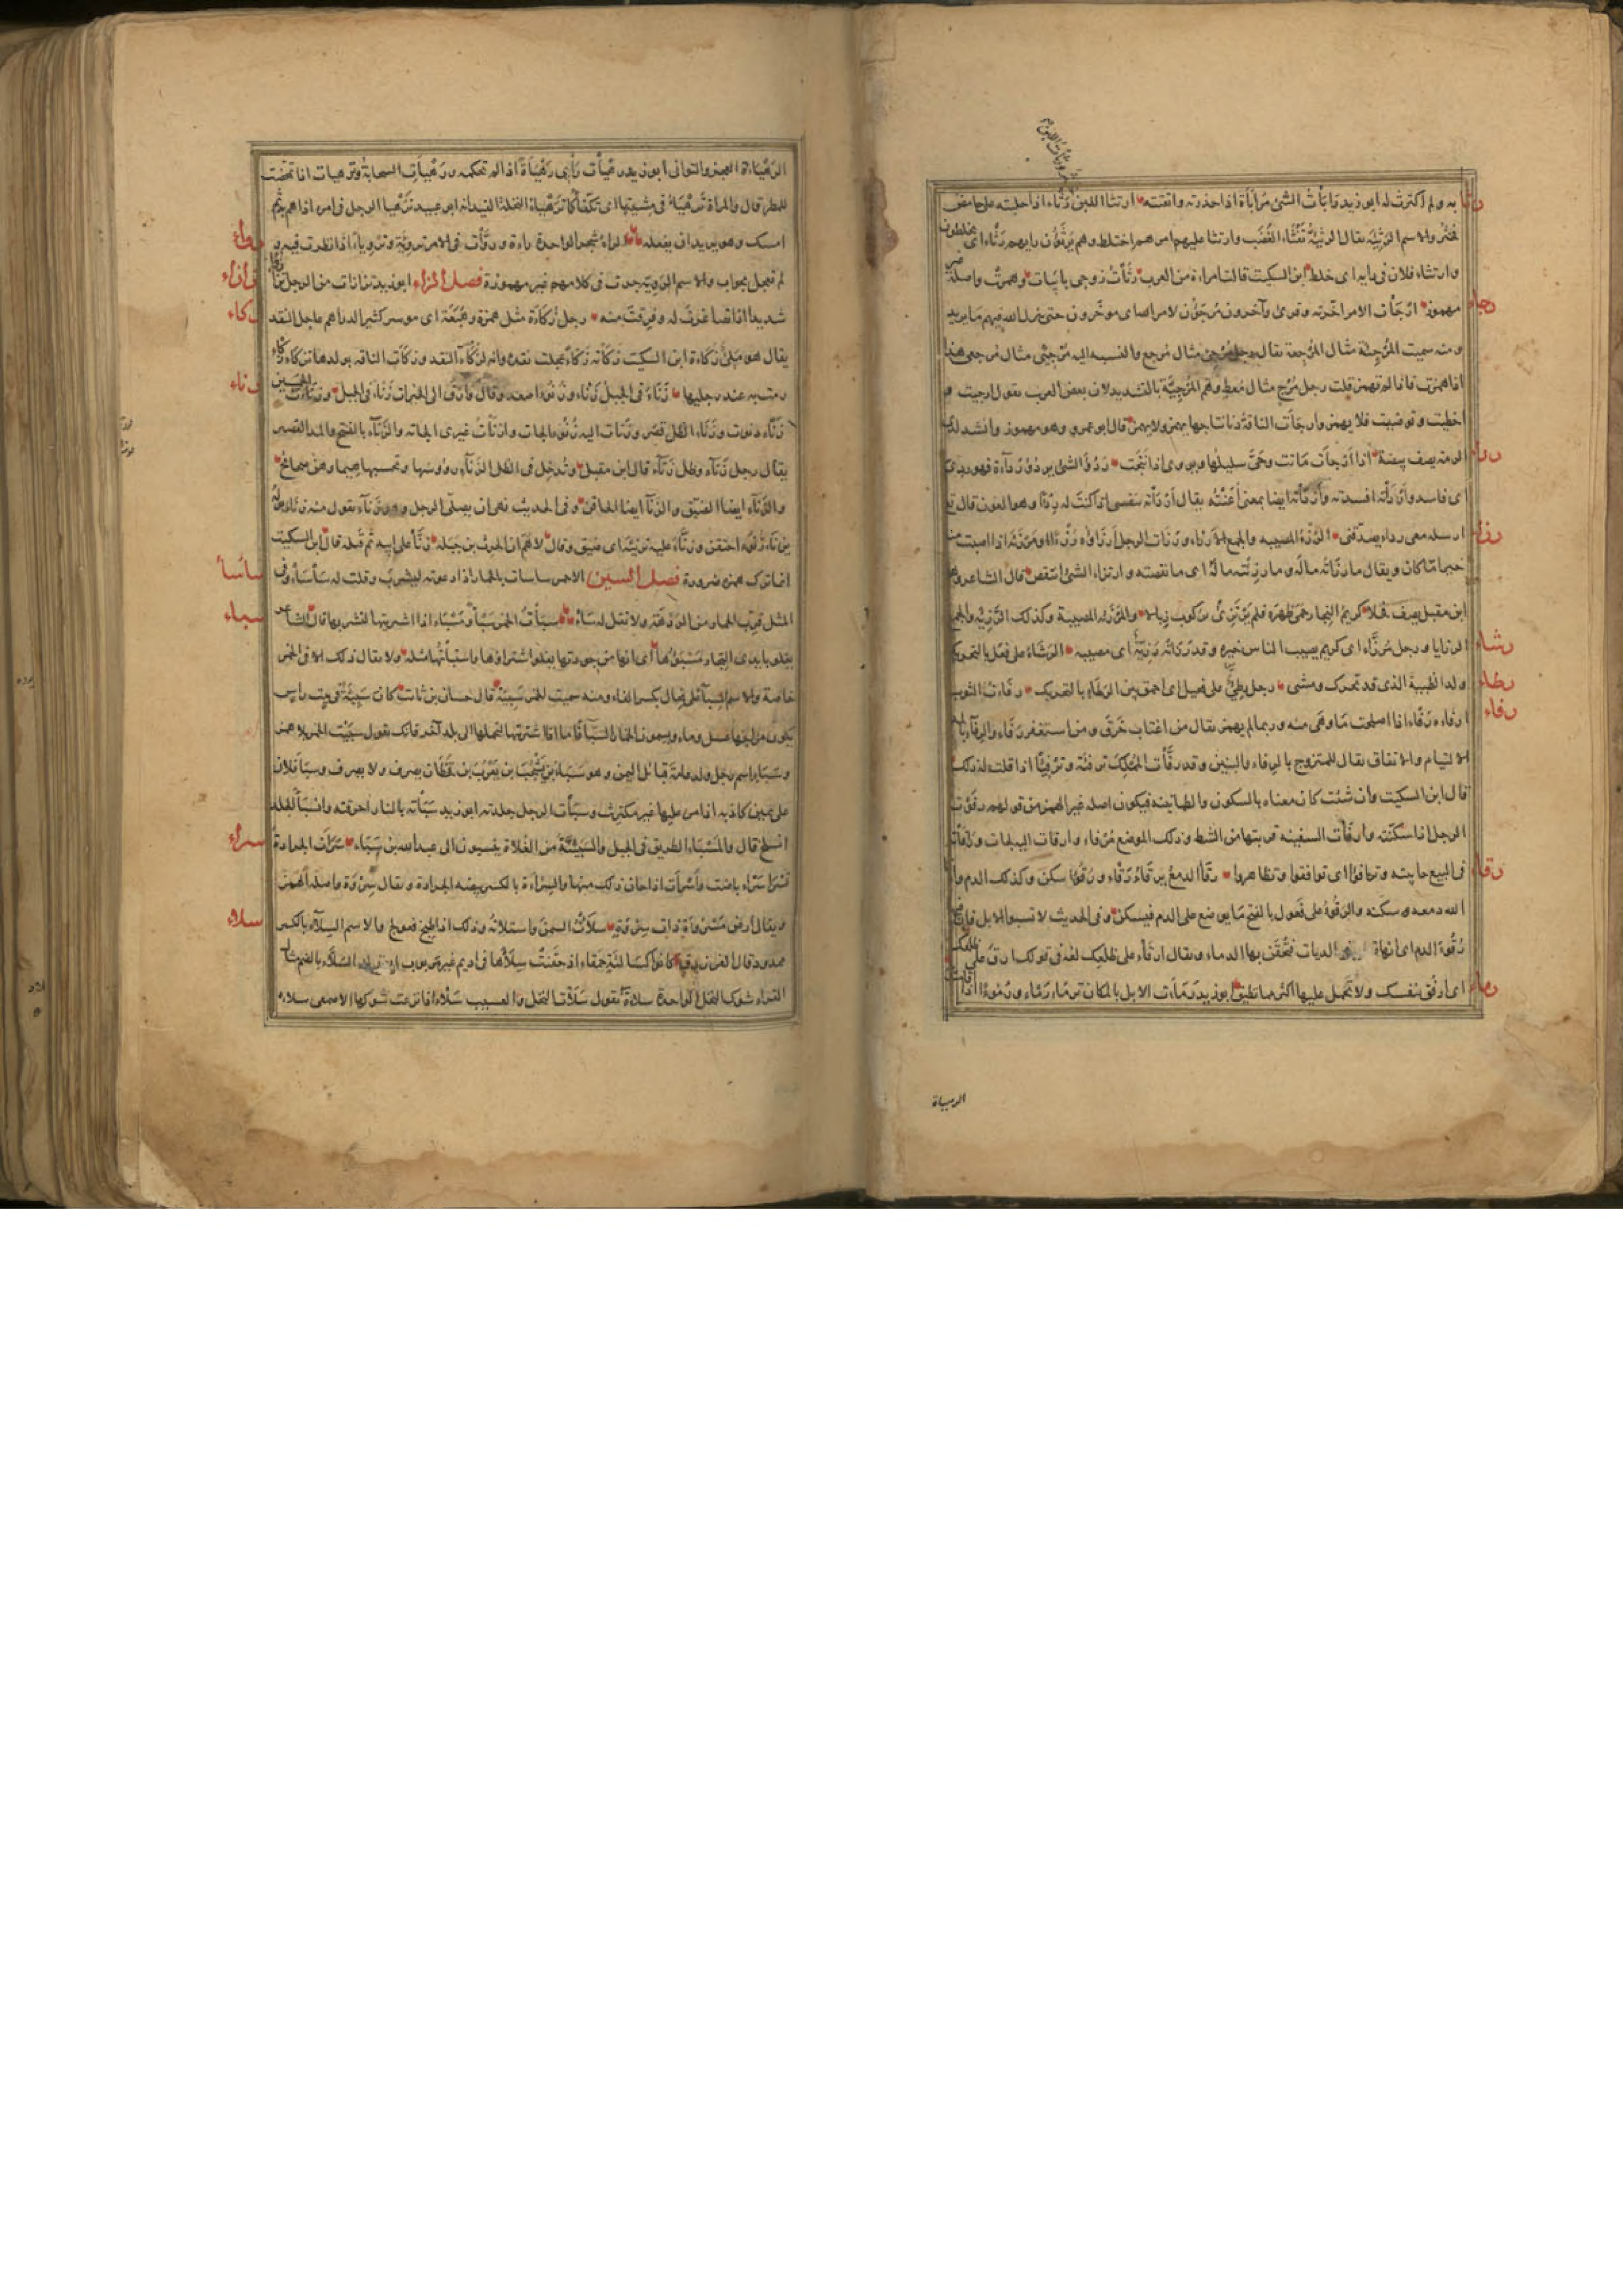 به ولم اكترث له ابو زيد رابأت الشئ مرابأة اذا حذرته واتقته ارتثا اللبن رثاء اذا حلبته على حامض
فخثر والاسم الرثيئة يقال الرثيئة تفثأ الغضب وارتثا عليهم امرهم اختلط وهم يرثؤن رايهم رثاء اى يخلطون
وارتثاء فلان فى رايه اى خلط ابن السكيت قالت امراة من العرب رثأت زوجى بابيات وهمزت واصله غير
مهموز ارجأت الامر اخرته وقرئ وآخرون مرجؤن لامر الله اى مؤخرون حتى ينزل الله فيهم ما يريد
ومنه سميت المرجئة مثال المرجعة يقال رجل مرجئ مثال مرجع والنسبه اليه مرجئى مثال مرجعى هذا
اذا همزت فاذا لم تهمز قلت رجل مرج مثال معط وهم المرجيّة بالتشديد لان بعض العرب يقول ارجيت و
اخطيت وتوضيت فلا يهمز وارجأت الناقة دنا نتاجها يهمز ولا يهمز قال ابو عمرو وهو مهموز وانشد لذى
الرمة يصف بيضة اذا ارجأت ماتت وحىّ سليلها ويروى اذا نتجت ردؤ الشئ يردؤ رداءة فهو ردئ
اى فاسد وأردأته افسدته وأردأته ايضا بمعنى أعنته يقال أردأته بنفسى اذا كنت له ردءا وهو العون قال تع
ارسله معى ردءا يصدقنى الرزء المصيبه والجمع الارزاء ورزأت الرجل أرزأوه رزءا ومرزئة اذا اصبت منه
خيرا ما كان ويقال ما رزأته ماله وما رزئته ماله اى ما نقصته وارتزاء الشئ انتقص قال الشاعر وهو
ابن مقبل يصف فحلا كريم النجار حمى ظهره فلم يرتزئ بركوب زبالا والمرزئه المصيبة وكذلك الرزيئه والجمع
الرزايا ورجل مرزّاء اى كريم يصيب الناس خيره وقد رزأته رزيئة اى مصيبه الرشاء على فعل بالتحريك
ولد الظبية الذى قد تحرك ومشى رجل رطئ على فعيل اى احمق بين الرطاء بالتحريك رفأت الثوب
ارفاءه رفاء اذا اصلحت ما وهى منه وربما لم يهمز يقال من اغتاب خرق ومن استغفر رفاء والرفاء بالمد
الالتيام والاتفاق يقال للمتزوج بالرفاء والبنين وقد رفأت المملك ترفئة وترفيئا اذا قلت له ذلك
قال ابن السكيت وان شئت كان معناه بالسكون والطمانينه فيكون اصله غير الهمز من قولهم رفوت
الرجل اذا سكنته وارفأت السفينه قربتها من الشط وذلك الموضع مرفاء وارفات اليه لجات ورافأته
فى البيع حابيته وترافؤا اى توافقوا وتظاهروا رقأ الدمع يرقاء رقاء ورقوءا سكن وكذلك الدم وارقأ
الله دمعه سكنه والرقوء على فعول بالفتح ما يوضع على الدم فيسكن وفى الحديث لا تسبوا الابل فان فيها
رقوء الدم اى انها تعطى فى الديات فتحقن بها الدماء ويقال ارقأ على ظلعك لغة فى قولك ارق على ظلعك
اى ارفق بنفسك ولا تحمل عليها اكثر مما تطيق ابو زيد رمأت الابل بالمكان ترماء رمأء ورموءا اذا اقامت
رثا
رجاء
رداء
رزاء
رشاء
رطاء
رفاء
رقاء
رماء
الرهياة
الرهيأة العجز والتوانى ابو زيد رهيأت رأيى رهيأة اذا لم تحكمه ورهيأت السحابة وترهيات اذا تمخضت
للمطر قال والمراة ترهيأ فى مشيتها اى تكفأ كما ترهيأ النخلة العيدانه ابو عبيد ترهيا الرجل فى امره اذا هم به ثم
امسك وهو يريد ان يفعله الراء شجر الواحدة راءة وروأت فى الامر تروئة وترويأ اذا نظرت فيه و
لم تعجل بجواب والاسم الروية جرت فى كلامهم غير مهموزة فصل الزاء ابو زيد تزازات من الرجل تزأزأ
شديدا اذا تصاغرت له وفرقت منه رجل زكأة مثل همزة وهبعة اى موسر كثير الدراهم عاجل النقد
يقال هو ملئ زكأة ابن السكيت زكأته زكأ عجلت نقده وانه لزكاء النقد وزكأت الناقه بولدها تزكاء زكاء
رمت به عند رجليها زنأ فى الجبل زنأ وزنوءا صعد وقال وارق الى الخيرات زناء فى الجبل وزنأت للخمسين
زناء دنوت وزنأ الظل قصر وزنات اليه زنوءا لجات وازنأت غيرى الجاته والزناء بالفتح والمد القصير
يقال رجل زناء وظل زناء قال ابن مقبل وتدخل فى الظل الزناء رؤسها وتحسبها هيما وهن صحائح
والزناء ايضا الضيق والزناء ايضا الحاقن وفى الحديث نهى ان يصلى الرجل وهو زناء تقول منه زنأ بوله
يزناء زنوءا احتقن وزنأ عليه تزنئة اى ضيق وقال لاهم ان الحرث بن جبله زنا على ابيه ثم قتله قال ابن السكيت
انما ترك همزه ضرورة فصل السين الاحمر ساسات بالحمار اذا دعوته ليشرب وقلت له سأسأ وفى
المثل قرب الحمار من الردهة ولا تقل له سأ سبأت الخمر سبأ ومسبأ اذا اشتريتها لتشربها قال الشاعر
يغلو بايدى التجار مسبؤها اى انها من جودتها يغلو اشتراؤها واستبأتها مثله ولا يقال ذلك الا فى الخمر
خاصة والاسم السباء على فعال بكسر الفاء ومنه سميت الخمر سبيئة قال حسان بن ثابت كان سبيئة فى بيت راس
يكون مزاجها عسل وماء ويسمون الخمار السباء فاما اذا اشتريتها لتحملها الى بلد آخر فانك تقول سبيت الخمر بلا همز
وسبأ اسم رجل ولد عامة قبائل اليمن وهو سبأ بن يشجب بن يعرب بن قحطان يصرف ولا يصرف وسبأ فلان
على يمين كاذبه اذا مر عليها غير مكترث وسبأت الرجل جلدته ابو زيد سبأته بالنار احرقته وانسبأ الجلد
انسلخ قال والمسباء الطريق فى الجبل والسبيئية من الغلاة ينسبون الى عبد الله بن سباء سرأت الجرادة
تسرأ سرأ باضت وأسرأت اذا حان ذلك منها والسرأة بالكسر بيضه الجرادة ويقال سروة واصله الهمز
ويقال ارض مسروءة ذات سروة سلأت السمن واستلأته وذلك اذا طبخ فعولج والاسم السلاء بالكسر
ممدود قال الفرزدق كانوا كسالئة حمقاء اذ حقنت سلاءها فى اديم غير مربوب السلاء بالضم مثال
القراء شوك النخل الواحدة سلاءة تقول سلأت النخل والعسيب سلأ اذا نزعت شوكها الاصمعى سلاه
زازاء
زكاء
زناء
ساسأ
سباء
سراء
سلاء